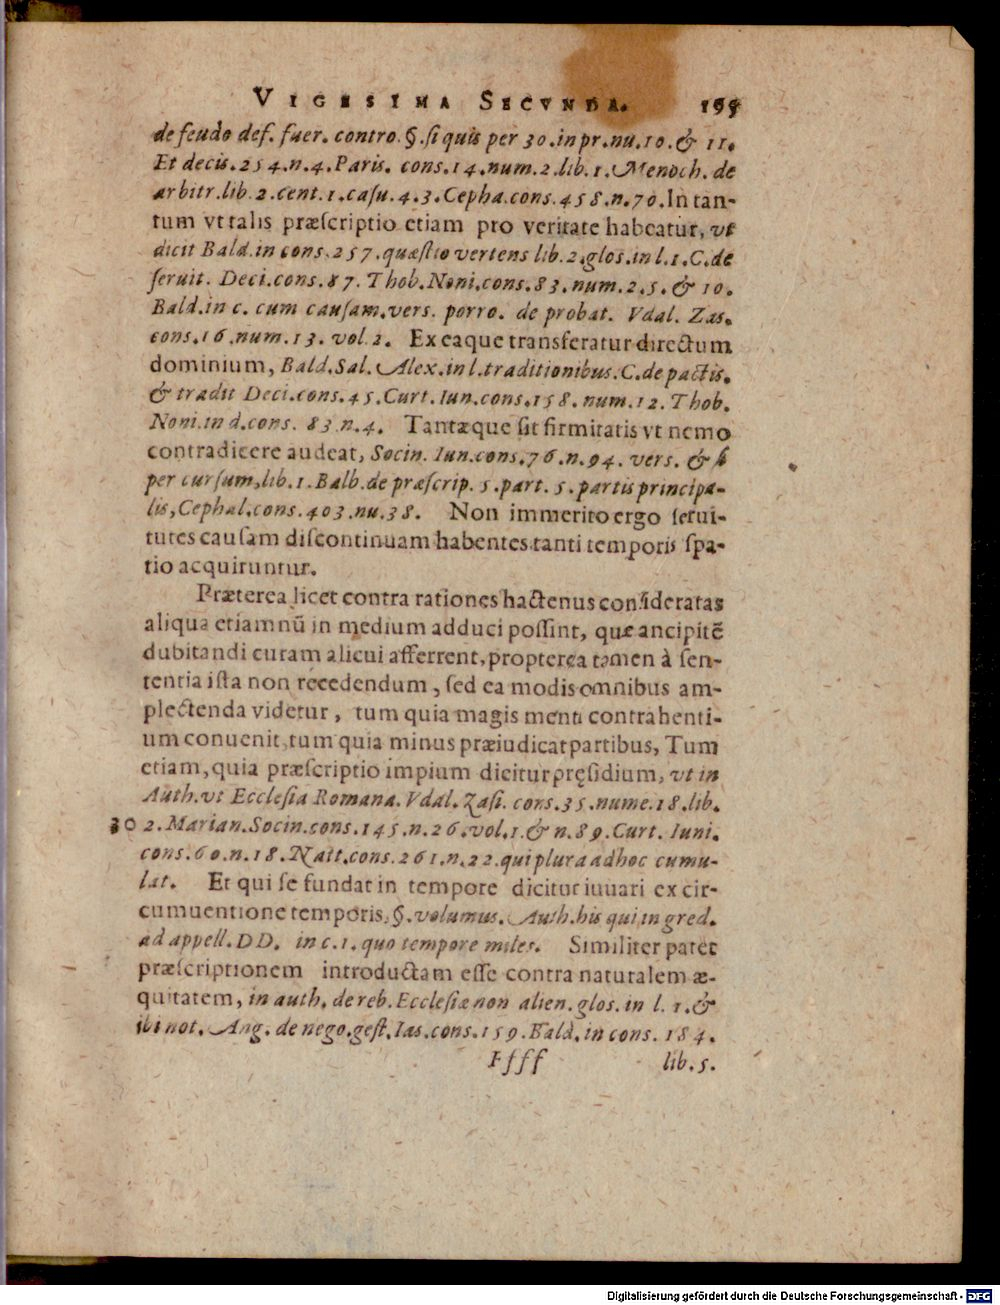 VIGESIMA SECVNDA. 195
de feudo def. fuer. contro. §. si quis per 30. in pr. nu. 10. & 11.
Et decis. 254. n. 4. Paris. cons. 14. num. 2. lib. 1. Menoch. de
arbitr. lib. 2. cent. 1. casu. 4. 3. Cepha. cons. 458. n. 70. In tan-
tum vt talis præscriptio etiam pro veritate habeatur, vt
dicit Bald. in cons. 257. quæstio vertens lib. 2. glos. in l. 1. C. de
seruit. Deci. cons. 87. Thob. Noni. cons. 83. num. 2. 5. & 10.
Bald. in c. cum causam. vers. porro. de probat. Vdal. Zas.
cons. 16. num. 13. vol. 2. Ex eaque transferatur directum
dominium, Bald. Sal. Alex. in l. traditionibus. C. de pactis.
& tradit Deci. cons. 45. Curt. Iun. cons. 158. num. 12. Thob.
Noni. in d. cons. 83. n. 4. Tantæque sit firmitatis vt nemo
contradicere audeat, Socin. Iun. cons. 76. n. 94. vers. &
per cursum, lib. 1. Balb. de præscrip. 5. part. 5. partis principa-
lis, Cephal. cons. 403. nu. 38. Non immerito ergo serui-
tutes causam discontinuam habentes tanti temporis spa-
tio acquiruntur.
Præterea licet contra rationes hactenus consideratas
aliqua etiamnū in medium adduci possint, quæ ancipitē
dubitandi curam alicui afferrent, propterea tamen à sen-
tentia ista non recedendum, sed ea modis omnibus am-
plectenda videtur, tum quia magis menti contrahenti-
um conuenit, tum quia minus præiudicat partibus, Tum
etiam, quia præscriptio impium dicitur pręsidium, vt in
Auth. vt Ecclesia Romana. Vdal. Zasi. cons. 35. nume. 18. lib.
30 2. Marian. Socin. cons. 145. n. 26. vol. 1. & n. 89. Curt. Iuni.
cons. 60. n. 18. Natt. cons. 261. n. 22. qui plura ad hoc cumu-
lat. Et qui se fundat in tempore dicitur iuuari ex cir-
cumuentione temporis, §. volumus. Auth. his qui ingred.
ad appell. DD. in c. 1. quo tempore miles. Similiter patet
præscriptionem introductam esse contra naturalem æ-
quitatem, in auth. de reb. Ecclesiæ non alien. glos. in l. 1. &
ibi not. Ang. de nego. gest. Ias. cons. 159. Bald. in cons. 184.
Ffff lib. 5.
Digitalisierung gefördert durch die Deutsche Forschungsgemeinschaft - DFG